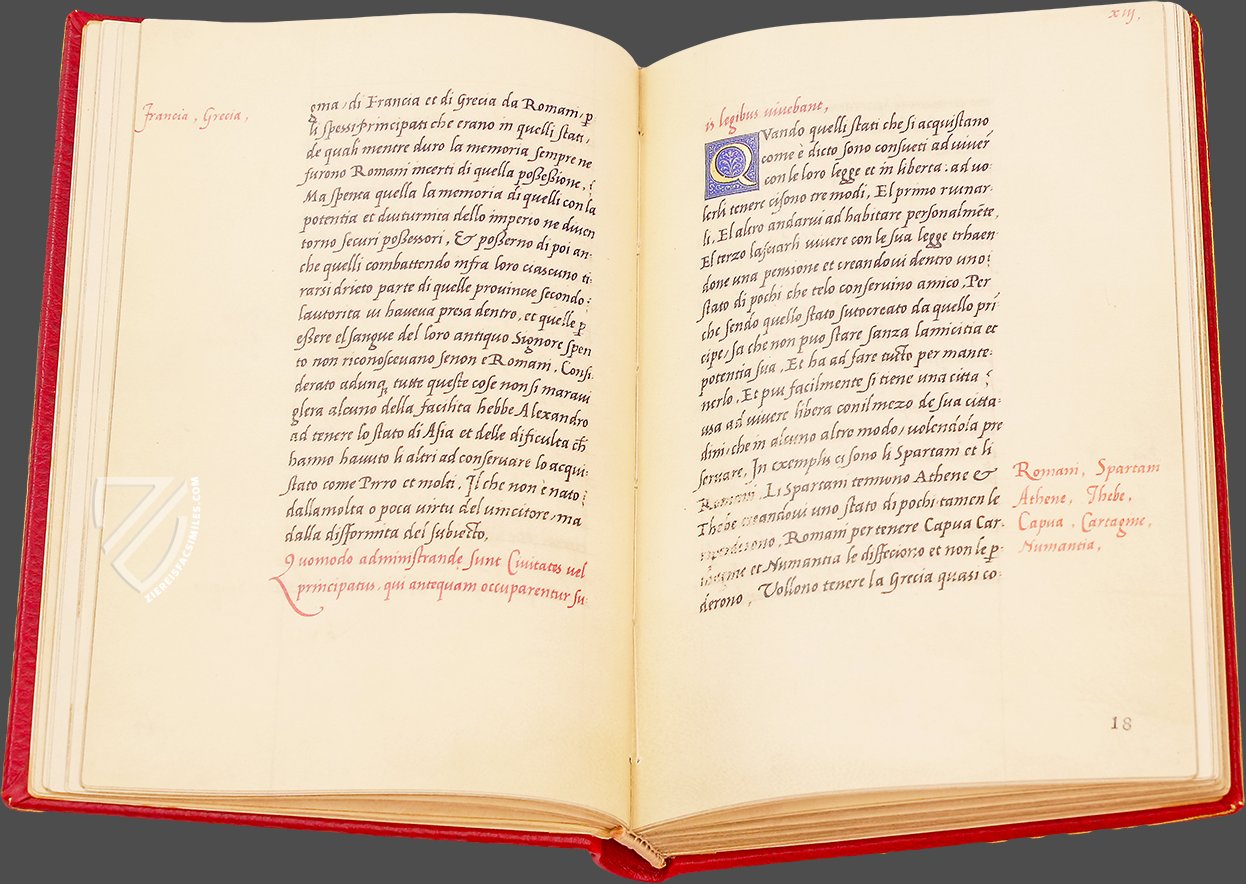 Francia, Grecia,
gma, di Francia et di Grecia da Romani, p
li spessi principati che erano in quelli stati,
de quali mentre duro la memoria sempre ne
furono Romani incerti di quella possessione,
Ma spenta quella la memoria di quelli con la
potentia et diuturnita dello imperio ne diven
torno securi possessori, & posserno di poi an:
che quelli combattendo infra loro ciascuno ti:
rarsi drieto parte di quelle provincie secondo:
lautorita vi haveva presa dentro, et quelle p
essere el sangue del loro antiquo Signore spen
to non riconoscevano senon e Romani, Consi:
derato adunq tutte queste cose non si maravi
glera alcuno della facilita hebbe Alexandro
ad tenere lo stato di Asia et delle dificulta ch
hanno havuto li altri ad conservare lo acqui:
stato come Pirro et molti, Il che non è nato
dalla molta o poca virtu del vincitore, ma
dalla difformita del subiecto,
Quomodo administrande sunt Civitates vel
principatus, qui antequam occuparentur su:
xiij.
is legibus vivebant,
QVando quelli stati che si acquistano
come è dicto sono consueti ad viver
con le loro legge et in liberta: ad vo:
lerli tenere ci sono tre modi, El primo ruinar:
li, El altro andarvi ad habitare personalmēte,
El terzo lassiarli vivere con le sua legge trhaen
done una pensione et creandovi dentro uno
stato di pochi che telo conservino amico, Per
che sendo quello stato sutocreato da quello pri
cipe, sa che non puo stare sanza lamicitia et
potentia sua, Et ha ad fare tucto per mante:
nerlo, Et piu facilmente si tiene una citta
usa ad vivere libera con il mezo de sua citta:
dini, che in alcuno altro modo, volendola pre
servare, In exemplis ci sono li Spartani et li
Romani, Li Spartani tennino Athene &
Thebe creandovi uno stato di pochi, tamen le
riperderono, Romani per tenere Capua Car:
tagine et Numantia le disfeciono et non le p:
derono, Vollono tenere la Grecia quasi co:
Romani, Spartani
Athene, Thebe,
Capua, Cartagine,
Numantia,
18
ZIEREISFACSIMILES.COM